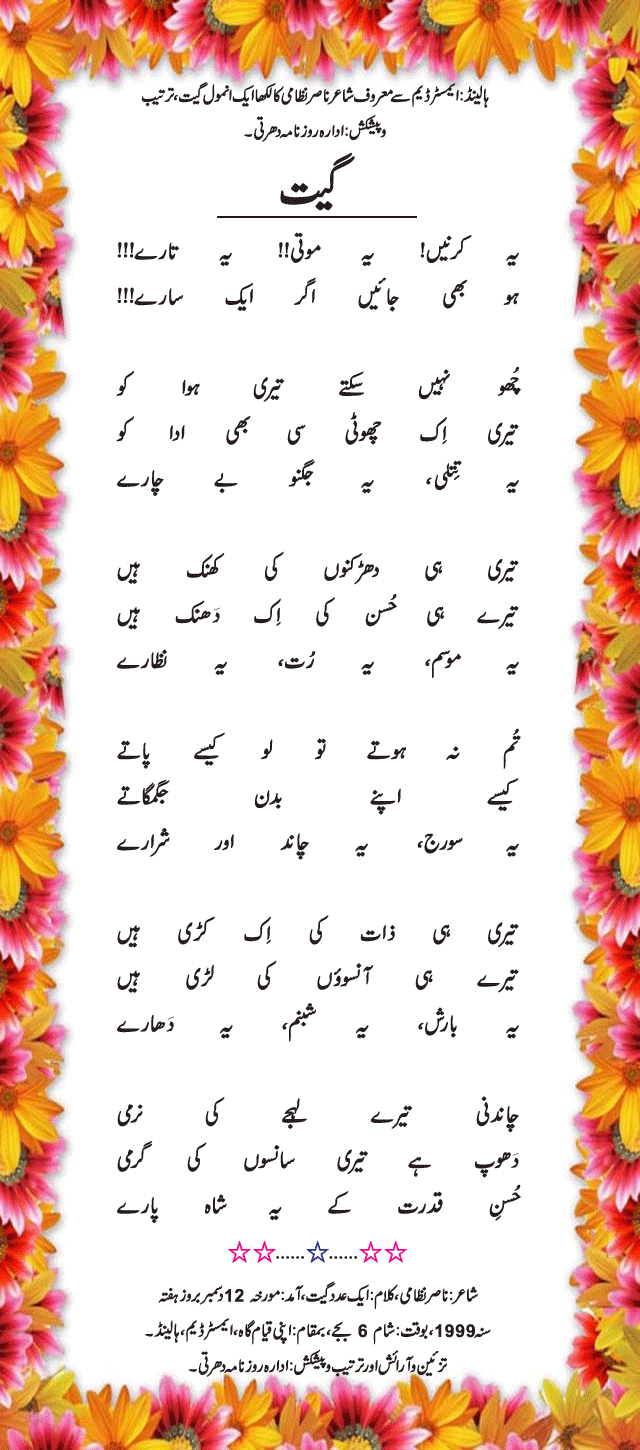 ہالینڈ: ایمسٹرڈیم سے معروف شاعر ناصر نظامی کا لکھا ایک انمول گیت، ترتیب
و پیشکش: ادارہ روزنامہ دھرتی۔
گیت
یہ کرنیں! یہ موتی!! یہ تارے!!!
ہو بھی جائیں اگر ایک سارے!!!
چُھو نہیں سکتے تیری ہوا کو
تیری اِک چھوٹی سی بھی ادا کو
یہ تِتلی، یہ جگنو بے چارے
تیری ہی دھڑکنوں کی کھنک ہیں
تیرے ہی حُسن کی اِک دَھنک ہیں
یہ موسم، یہ رُت، یہ نظارے
تُم نہ ہوتے تو لو کیسے پاتے
کیسے اپنے بدن جگمگاتے
یہ سورج، یہ چاند اور شرارے
تیری ہی ذات کی اِک کڑی ہیں
تیرے ہی آنسوؤں کی لڑی ہیں
یہ بارش، یہ شبنم، یہ دَھارے
چاندنی تیرے لہجے کی نرمی
دَھوپ ہے تیری سانسوں کی گرمی
حُسنِ قدرت کے یہ شاہ پارے
☆☆......☆......☆☆
شاعر: ناصر نظامی، کلام: ایک عدد گیت، آمد: مورخہ 12 دسمبر بروز ہفتہ
سنہ 1999، بوقت: شام 6 بجے، بمقام: اپنی قیام گاہ، ایمسٹرڈیم، ہالینڈ۔
تزئین و آرائش اور ترتیب و پیشکش: ادارہ روزنامہ دھرتی۔